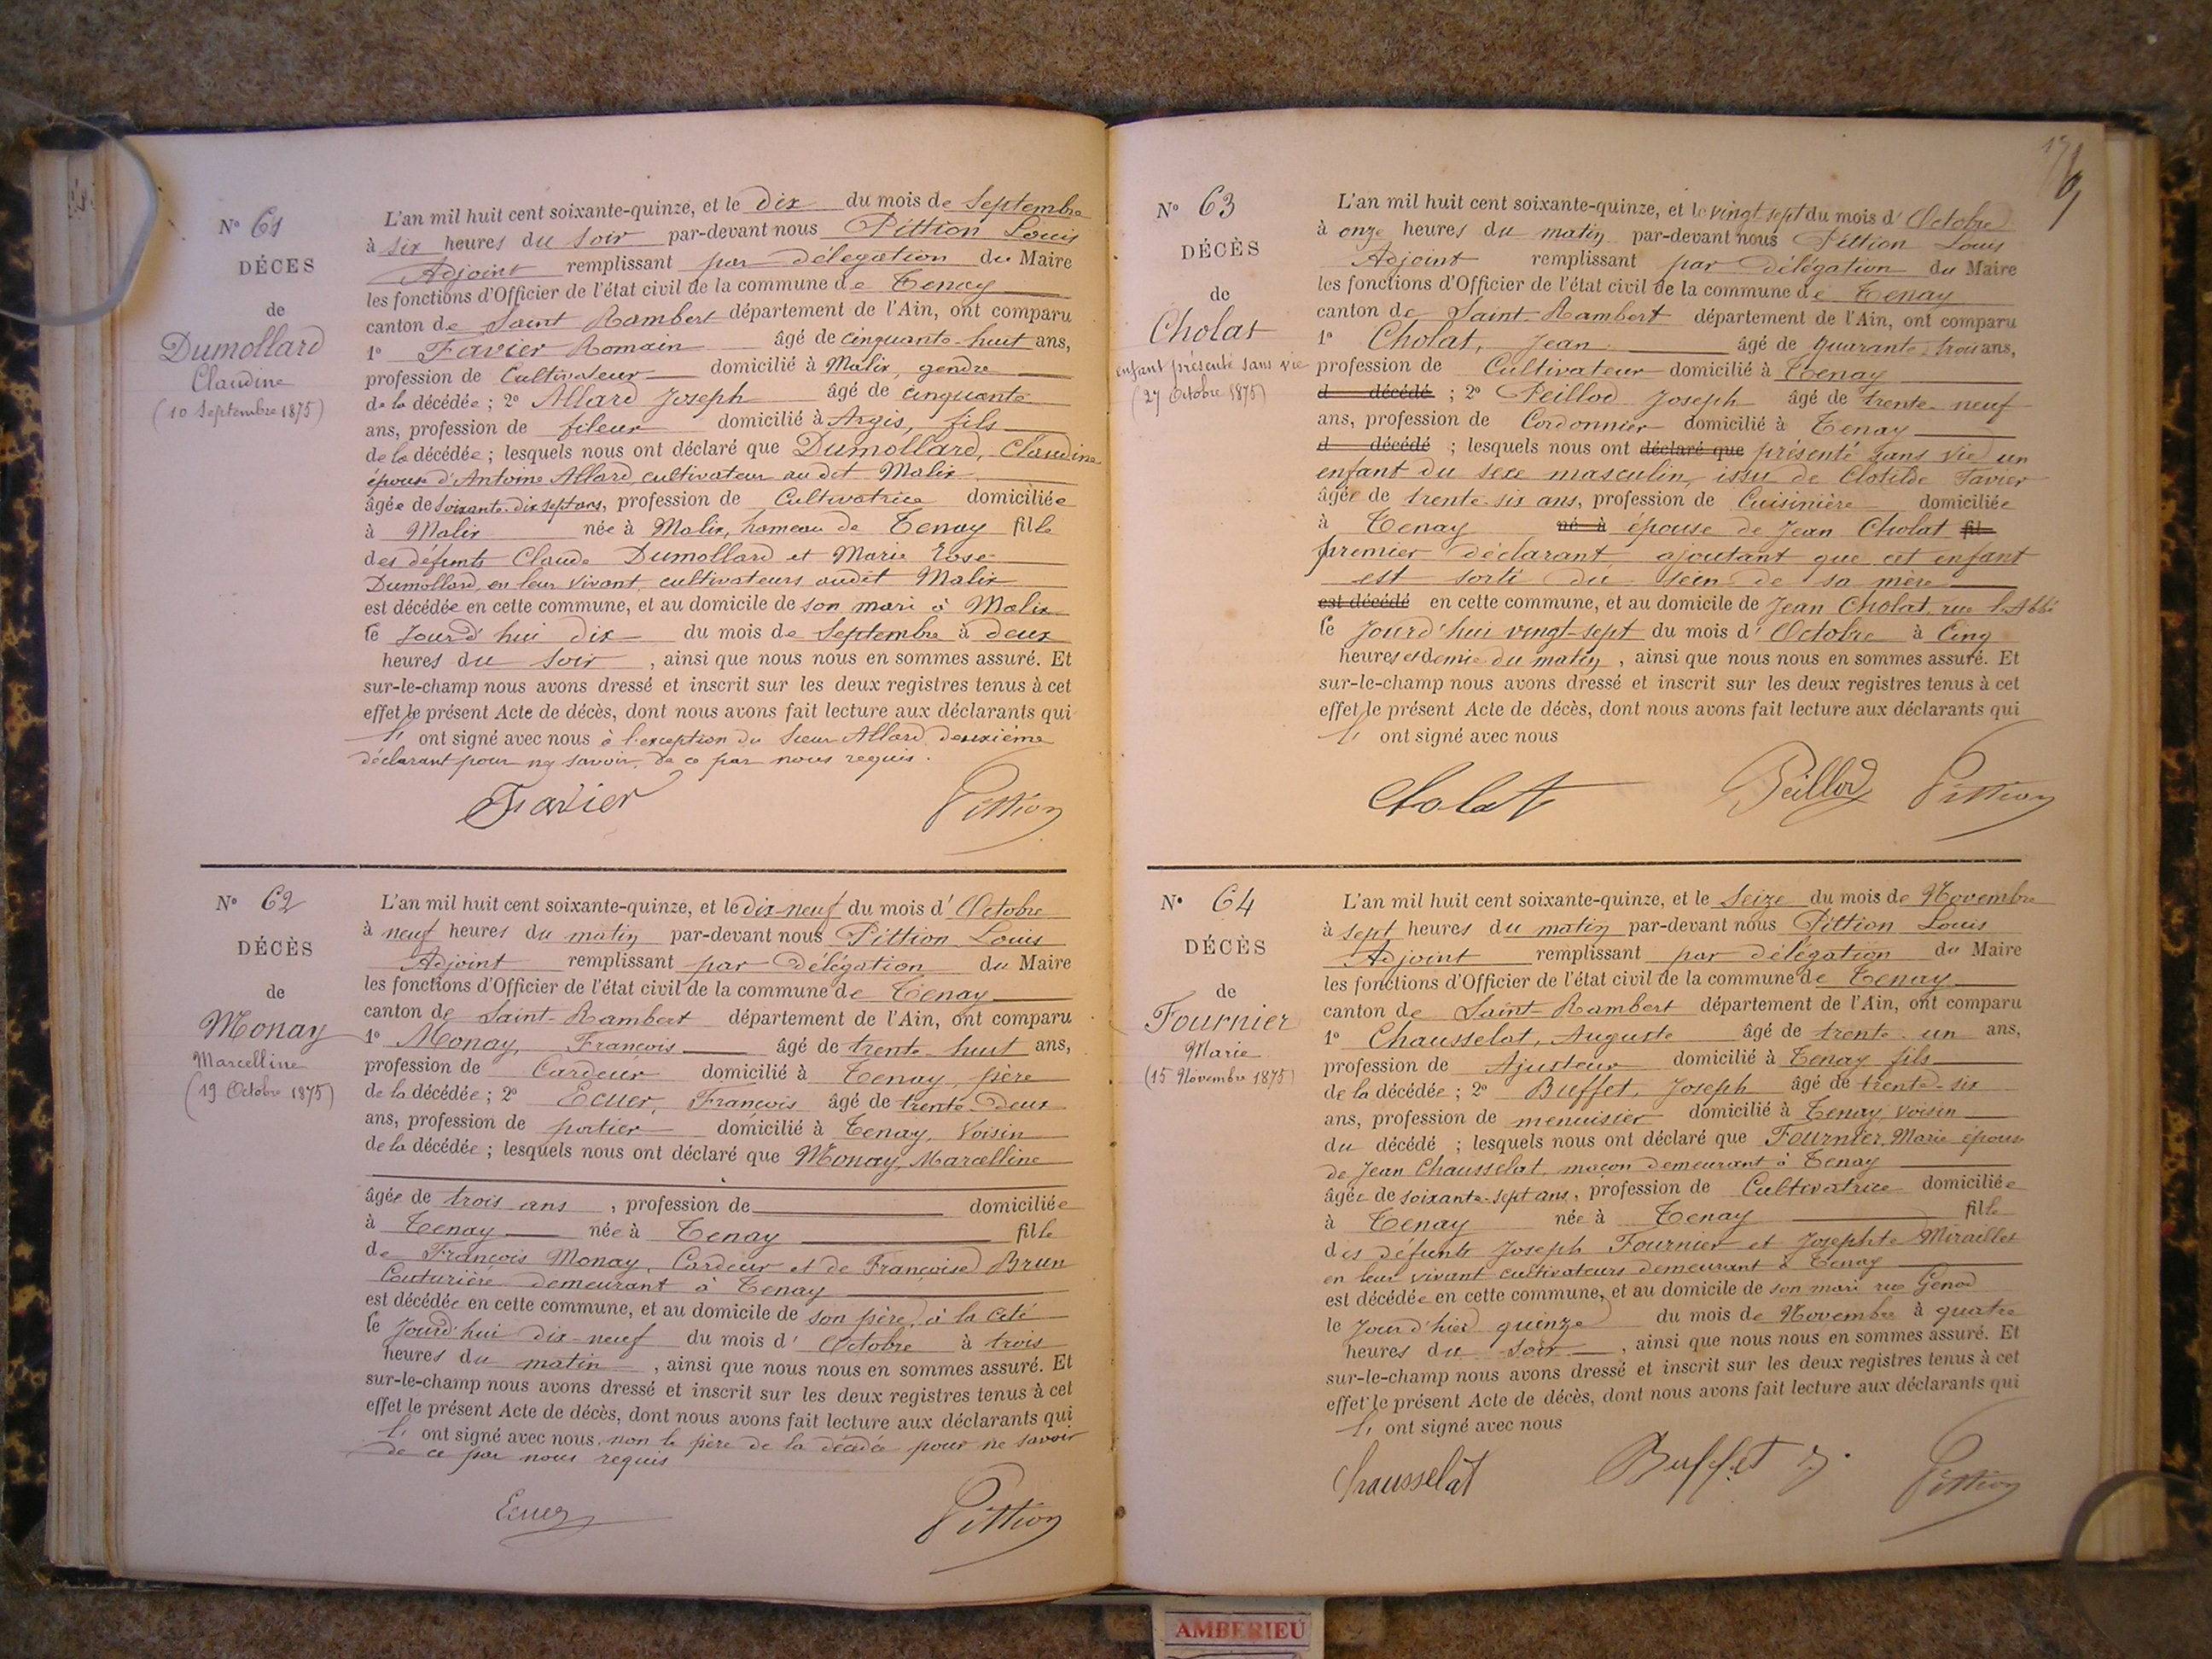 N° 61
DÉCES
de
Dumollard
Claudine
(10 Septembre 1875)
L'an mil huit cent soixante-quinze, et le dix du mois de Septembre
à six heures du soir par-devant nous Pittion Louis
Adjoint remplissant par délégation du Maire
les fonctions d'Officier de l'état civil de la commune de Tenay
canton de Saint Rambert département de l'Ain, ont comparu
1° Favier Romain âgé de cinquante-huit ans,
profession de Cultivateur domicilié à Malix, gendre
de la décédée ; 2° Allard Joseph âgé de cinquante
ans, profession de fileur domicilié à Argis, fils
de la décédée ; lesquels nous ont déclaré que Dumollard, Claudine
épouse d'Antoine Allard, cultivateur audit Malix
âgée de soixante-dix sept ans, profession de Cultivatrice domiciliée
à Malix née à Malix, hameau de Tenay fille
des défunts Claude Dumollard et Marie Rose
Dumollard, en leur vivant cultivateurs audit Malix
est décédée en cette commune, et au domicile de son mari à Malix
le jourd'hui dix du mois de Septembre à deux
heures du soir , ainsi que nous nous en sommes assuré. Et
sur-le-champ nous avons dressé et inscrit sur les deux registres tenus à cet
effet le présent Acte de décès, dont nous avons fait lecture aux déclarants qui
ont signé avec nous à l'exception du sieur Allard deuxième
déclarant pour ne savoir de ce par nous requis.
Favier Pittion
N° 62
DÉCÈS
de
Monay
Marcelline
(19 Octobre 1875)
L'an mil huit cent soixante-quinze, et le dix-neuf du mois d' Octobre
à neuf heures du matin par-devant nous Pittion Louis
Adjoint remplissant par délégation du Maire
les fonctions d'Officier de l'état civil de la commune de Tenay
canton de Saint-Rambert département de l'Ain, ont comparu
1° Monay, François âgé de trente-huit ans,
profession de Cardeur domicilié à Tenay, père
de la décédée ; 2° Ecuer, François âgé de trente-deux
ans, profession de portier domicilié à Tenay, voisin
de la décédée ; lesquels nous ont déclaré que Monay, Marcelline
âgée de trois ans , profession de domiciliée
à Tenay née à Tenay fille
de François Monay, Cardeur et de Françoise Brun
Couturière demeurant à Tenay
est décédée en cette commune, et au domicile de son père, à la Cité
le jourd'hui dix-neuf du mois d' Octobre à trois
heures du matin , ainsi que nous nous en sommes assuré. Et
sur-le-champ nous avons dressé et inscrit sur les deux registres tenus à cet
effet le présent Acte de décès, dont nous avons fait lecture aux déclarants qui
ont signé avec nous, non le père de la décédée pour ne savoir
de ce par nous requis
Ecuer Pittion
N° 63
DÉCÈS
de
Cholat
enfant présenté sans vie
(27 Octobre 1875)
L'an mil huit cent soixante-quinze, et le vingt sept du mois d' Octobre
à onze heures du matin par-devant nous Pittion Louis
Adjoint remplissant par délégation du Maire
les fonctions d'Officier de l'état civil de la commune de Tenay
canton de Saint-Rambert département de l'Ain, ont comparu
1° Cholat, Jean âgé de quarante-trois ans,
profession de Cultivateur domicilié à Tenay
d décédé ; 2° Peillod Joseph âgé de trente-neuf
ans, profession de Cordonnier domicilié à Tenay
d décédé ; lesquels nous ont déclaré que présenté sans vie un
enfant du sexe masculin, issu de Clotilde Favier
âgée de trente-six ans, profession de Cuisinière domiciliée
à Tenay né à épouse de Jean Cholat fil
premier déclarant ajoutant que cet enfant
est sorti du sein de sa mère
est décédé en cette commune, et au domicile de Jean Cholat, rue l'Abbé
le jourd'hui vingt-sept du mois d' Octobre à Cinq
heures et demie du matin , ainsi que nous nous en sommes assuré. Et
sur-le-champ nous avons dressé et inscrit sur les deux registres tenus à cet
effet le présent Acte de décès, dont nous avons fait lecture aux déclarants qui
ont signé avec nous
Cholat Peillod Pittion
N° 64
DÉCÈS
de
Fournier
Marie
(15 Novembre 1875)
L'an mil huit cent soixante-quinze, et le Seize du mois de Novembre
à sept heures du matin par-devant nous Pittion Louis
Adjoint remplissant par délégation du Maire
les fonctions d'Officier de l'état civil de la commune de Tenay
canton de Saint-Rambert département de l'Ain, ont comparu
1° Chausselat, Auguste âgé de trente-un ans,
profession de Ajusteur domicilié à Tenay fils
de la décédée ; 2° Buffet, Joseph âgé de trente-six
ans, profession de menuisier domicilié à Tenay, voisin
du décédé ; lesquels nous ont déclaré que Fournier, Marie épouse
de Jean Chausselat, maçon demeurant à Tenay
âgée de soixante-sept ans, profession de Cultivatrice domiciliée
à Tenay née à Tenay fille
des défunts Joseph Fournier et Josephte Miraillet
en leur vivant cultivateurs demeurant à Tenay
est décédée en cette commune, et au domicile de son mari rue Genod
le jour d'hier quinze du mois de Novembre à quatre
heures du soir , ainsi que nous nous en sommes assuré. Et
sur-le-champ nous avons dressé et inscrit sur les deux registres tenus à cet
effet le présent Acte de décès, dont nous avons fait lecture aux déclarants qui
ont signé avec nous
Chausselat Buffet J. Pittion
AMBERIEU